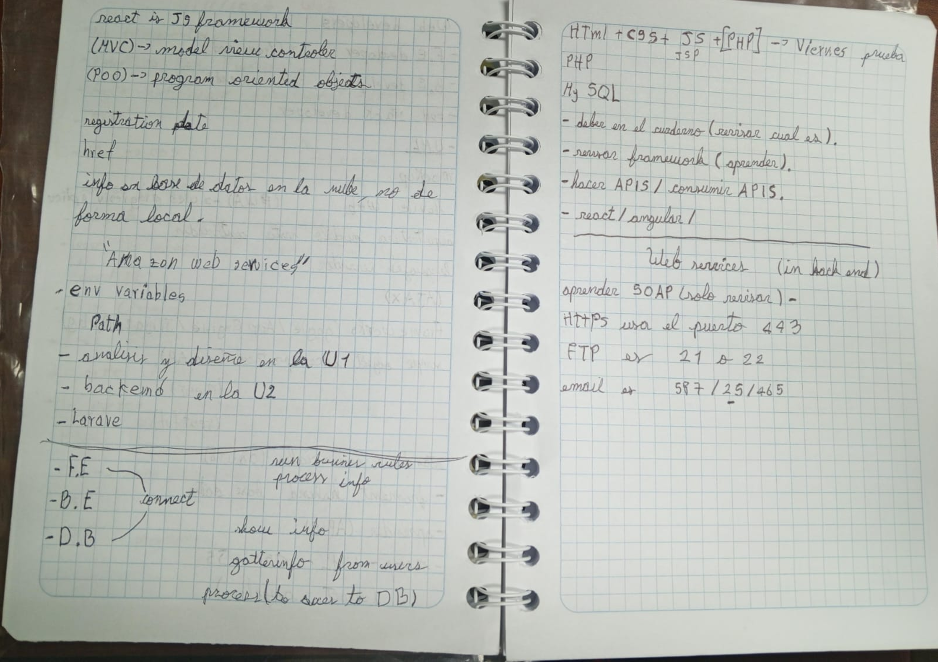 react is JS framework
(MVC) -> model view controler
(POO) -> program oriented objects
registration date
href
info en base de datos en la nube, no de
forma local.
"Amazon web services"
- env variables
Path
- analisis y diseño en la U1
- backend en la U2
- Larave
- F.E
- B.E connect
- D.B
run busines rules
process info
show info
gatterinfo from users
process (to to DB)
Html + CSS + JS + [PHP] -> Viernes prueba
JSP
PHP
My SQL
- deber en el cuaderno (revisar cual es).
- revisar framework (aprender).
- hacer APIS / consumir APIS.
- react / angular /
Web services (in back end)
aprender SOAP (solo revisar) -
HTTPS usa el puerto 443
FTP es 21 o 22
email es 587 / 25 / 465